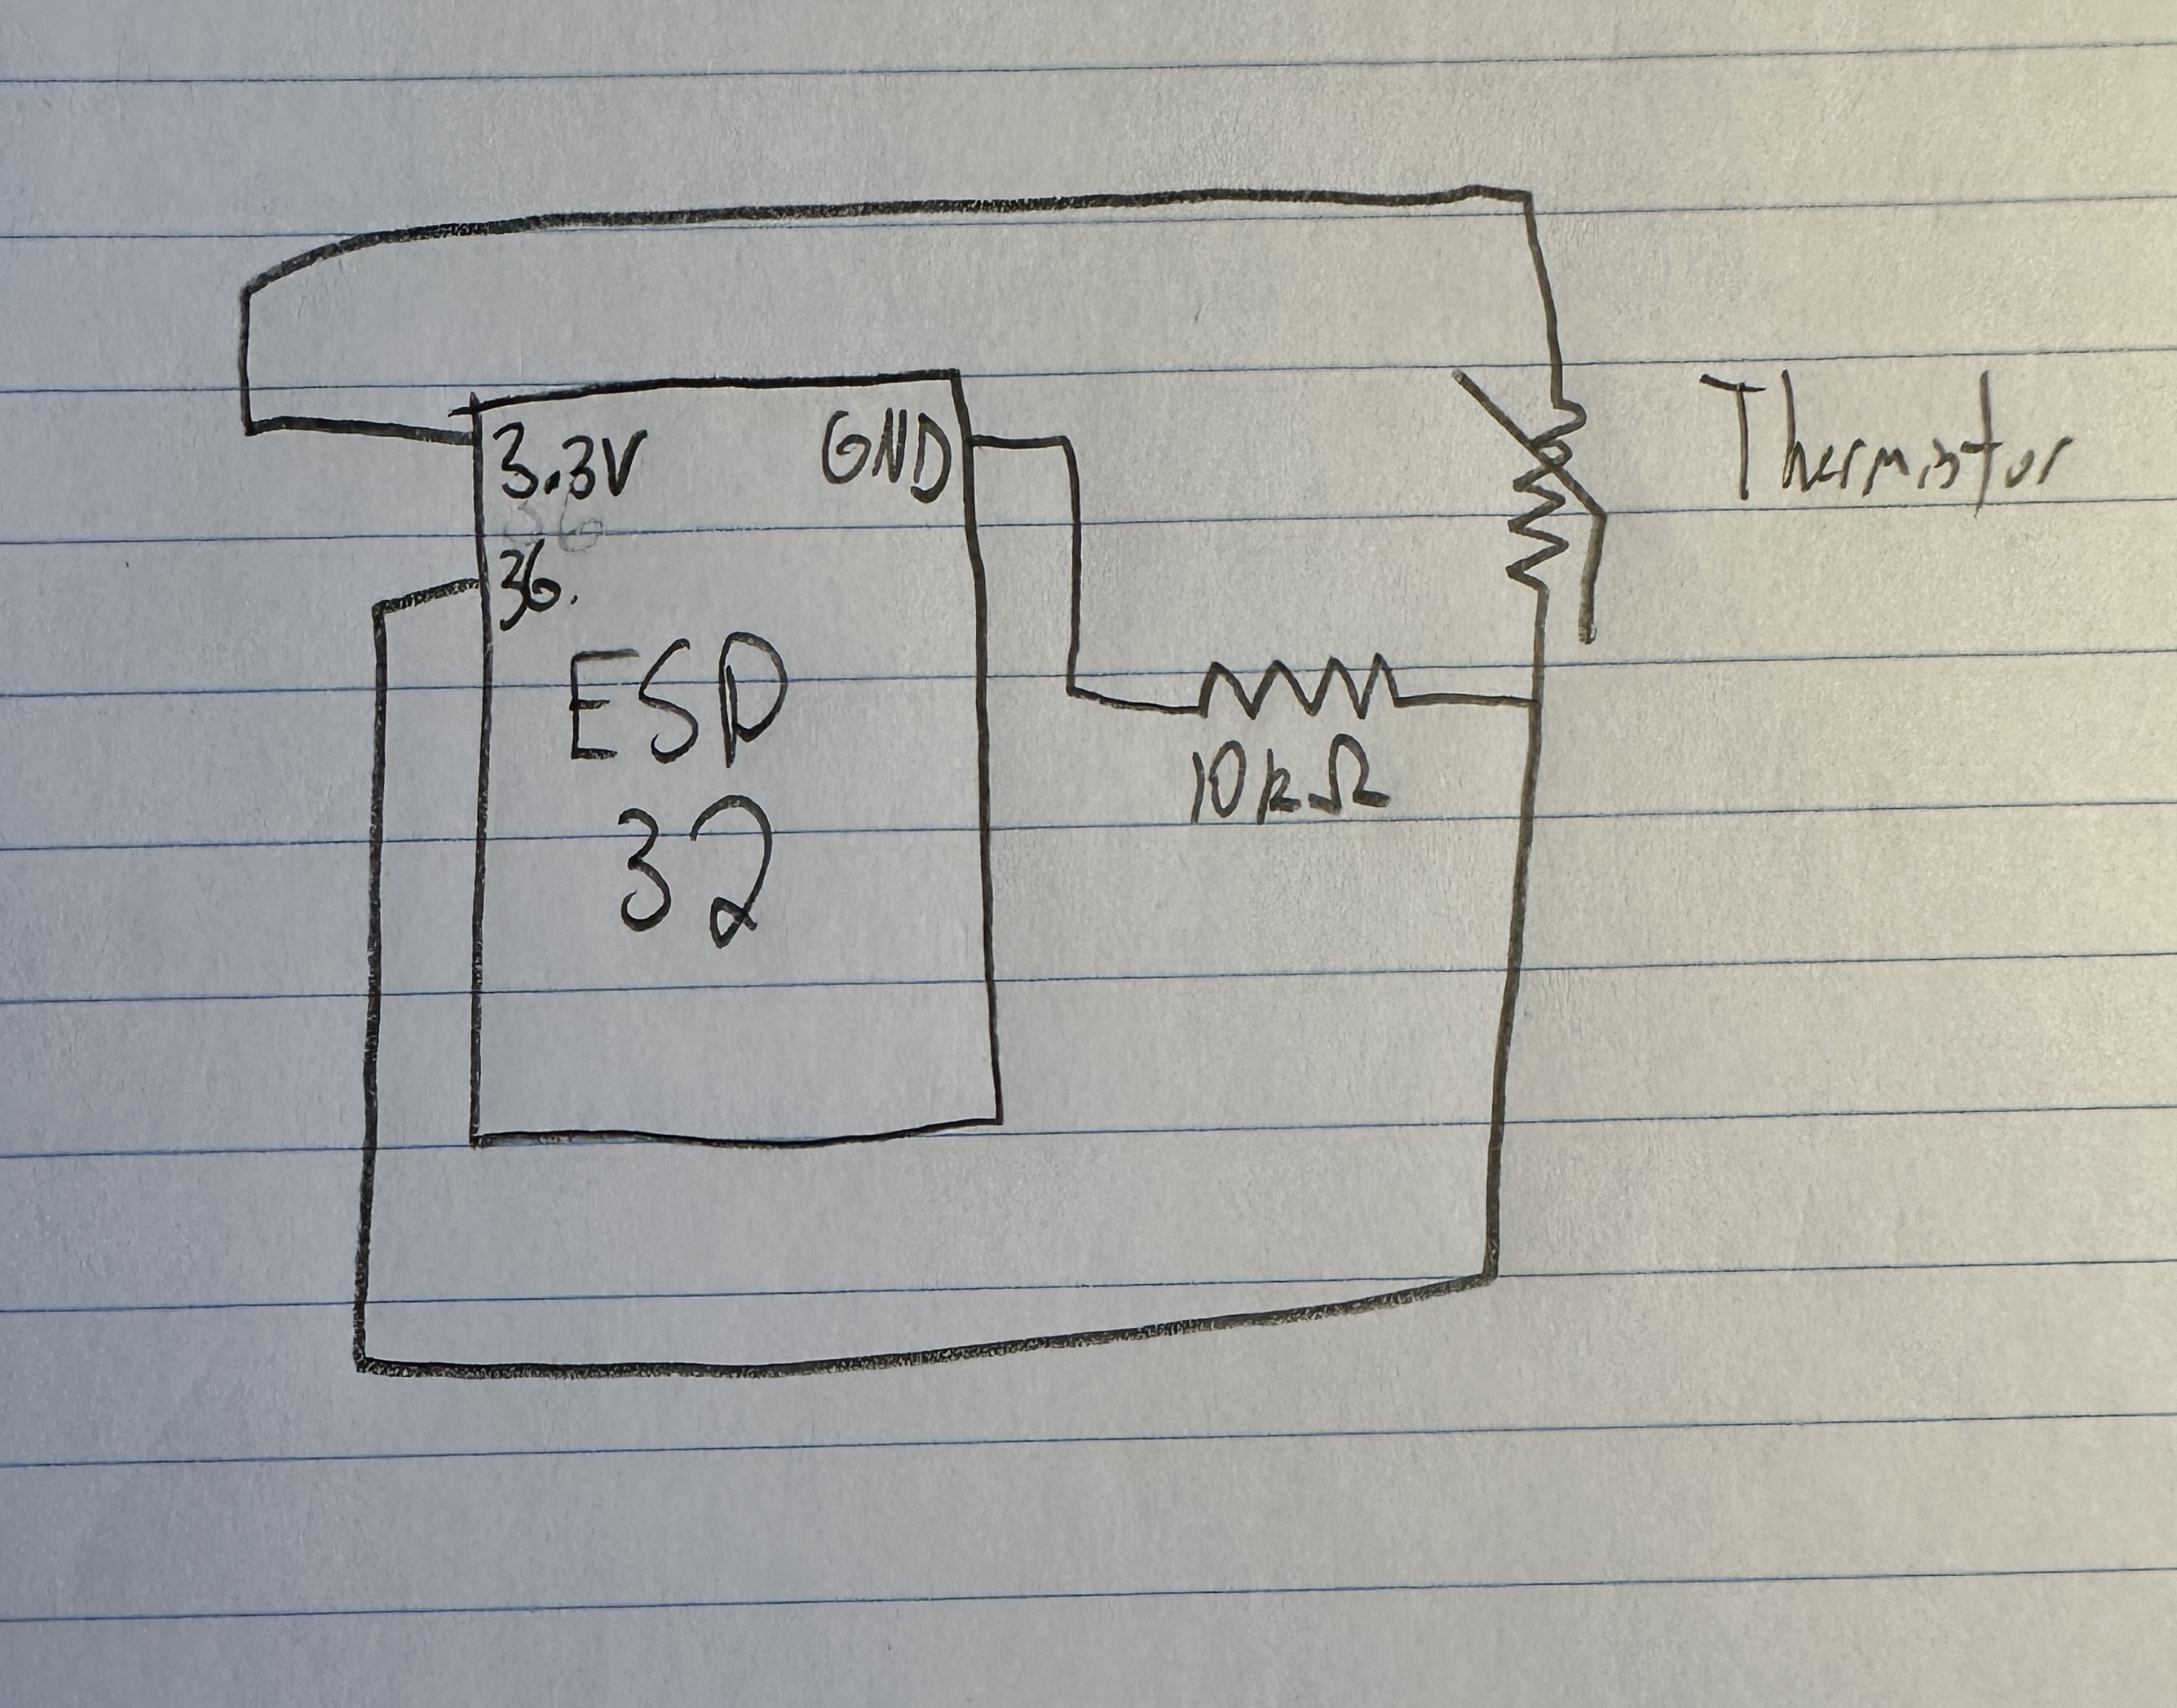 3.3V GND
36
36.
Thermistor
ESP
32
10kΩ